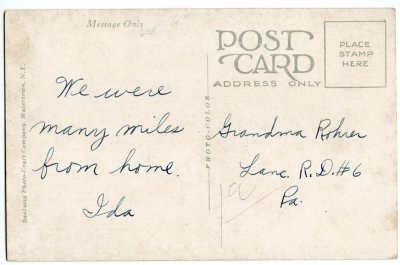 Message Only
POST
CARD
ADDRESS ONLY
PLACE
STAMP
HERE
Santway Photo-Craft Company, Watertown, N.Y.
We were
many miles
from home.
Ida
PHOTO-COLOR
Grandma Rohrer
Lanc. R.D.#6
Pa.